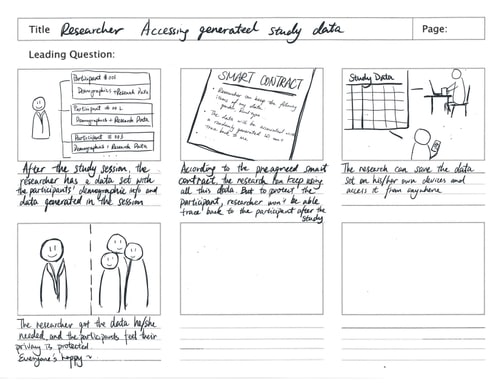 Title Researcher Accessing generated study data
Page:
Leading Question:
Participant # 001
Demographics + Research Data
Participant # 002
Demographics + Research Data
Participant # 003
Demographics + Research Data
After the study session, the
researcher has a data set with
the participants' demographic info and
data generated in the session
SMART CONTRACT
• Researcher can keep the following
• The data will be associated with
a randomly generated
According to the preagreed smart
contract, the research can keep using
all this data. But to protect the
participant, researcher won't be able
trace back to the participant after the
study
Study Data
The research can save the data
set on his/her own devices and
access it from anywhere
The researcher got the data he/she
needed, and the participants feel their
privacy is protected
Everyone's happy ~